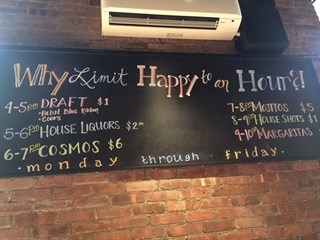 Why Limit Happy to an Hour?!
4-5pm DRAFT $1
- Pabst Blue Ribbon
- Coors
5-6pm HOUSE LIQUORS $2.00
6-7pm COSMOS $6
7-8pm MOJITOS $5
8-9pm HOUSE SHOTS $1
9-10pm MARGARITAS
· monday through friday ·